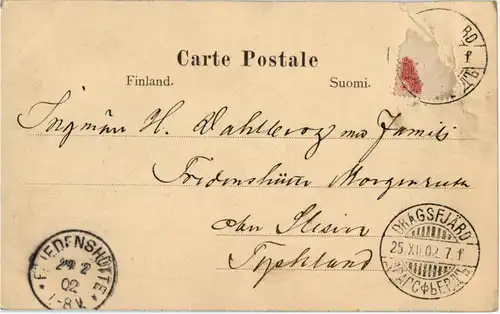 Carte Postale
Finland. Suomi.
Ingmän H. Dahlberg med Familj
Fridenshütte Morgenrute
Ober Slesien
Tyskland
DRAGSFJÄRD
25 XII 02 7. f
ДРАГСФЬЕРДЪ
FRIEDENSHÜTTE
2
02
7-8V.